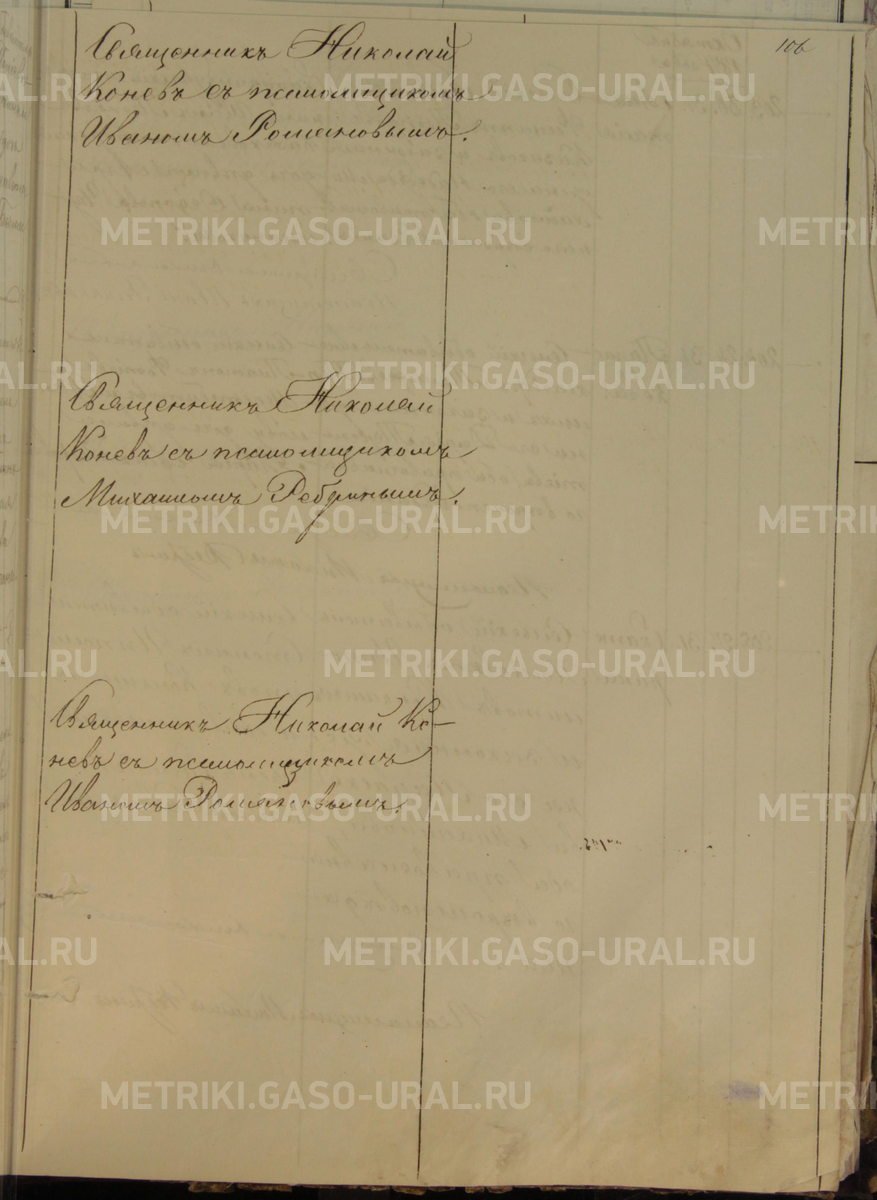 106
Священникъ Николай
Коневъ съ псаломщикомъ
Иваномъ Романовымъ.
Священникъ Николай
Коневъ съ псаломщикомъ
Михаиломъ Ребринымъ.
Священникъ Николай Ко-
невъ съ псаломщикомъ
Иваномъ Романовымъ.
METRIKI.GASO-URAL.RU